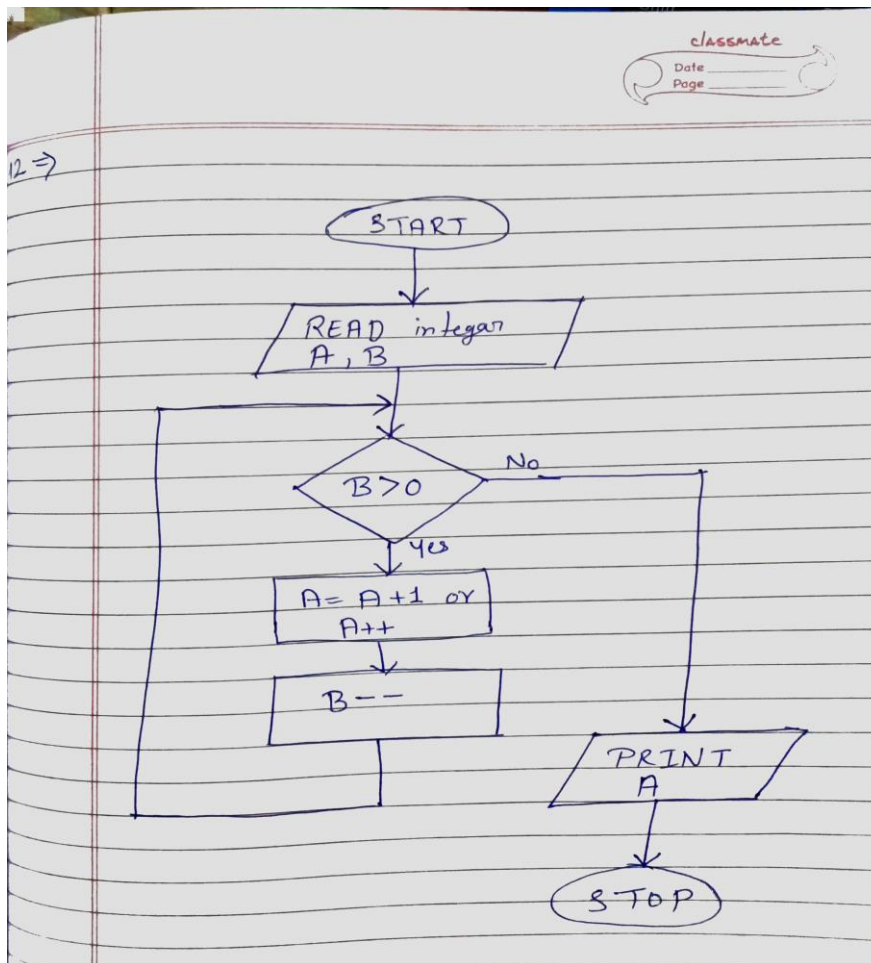 classmate
Date
Page
12 ⇒
START
READ integar
A, B
B>0
No
Yes
A= A+1 or
A++
B--
PRINT
A
STOP